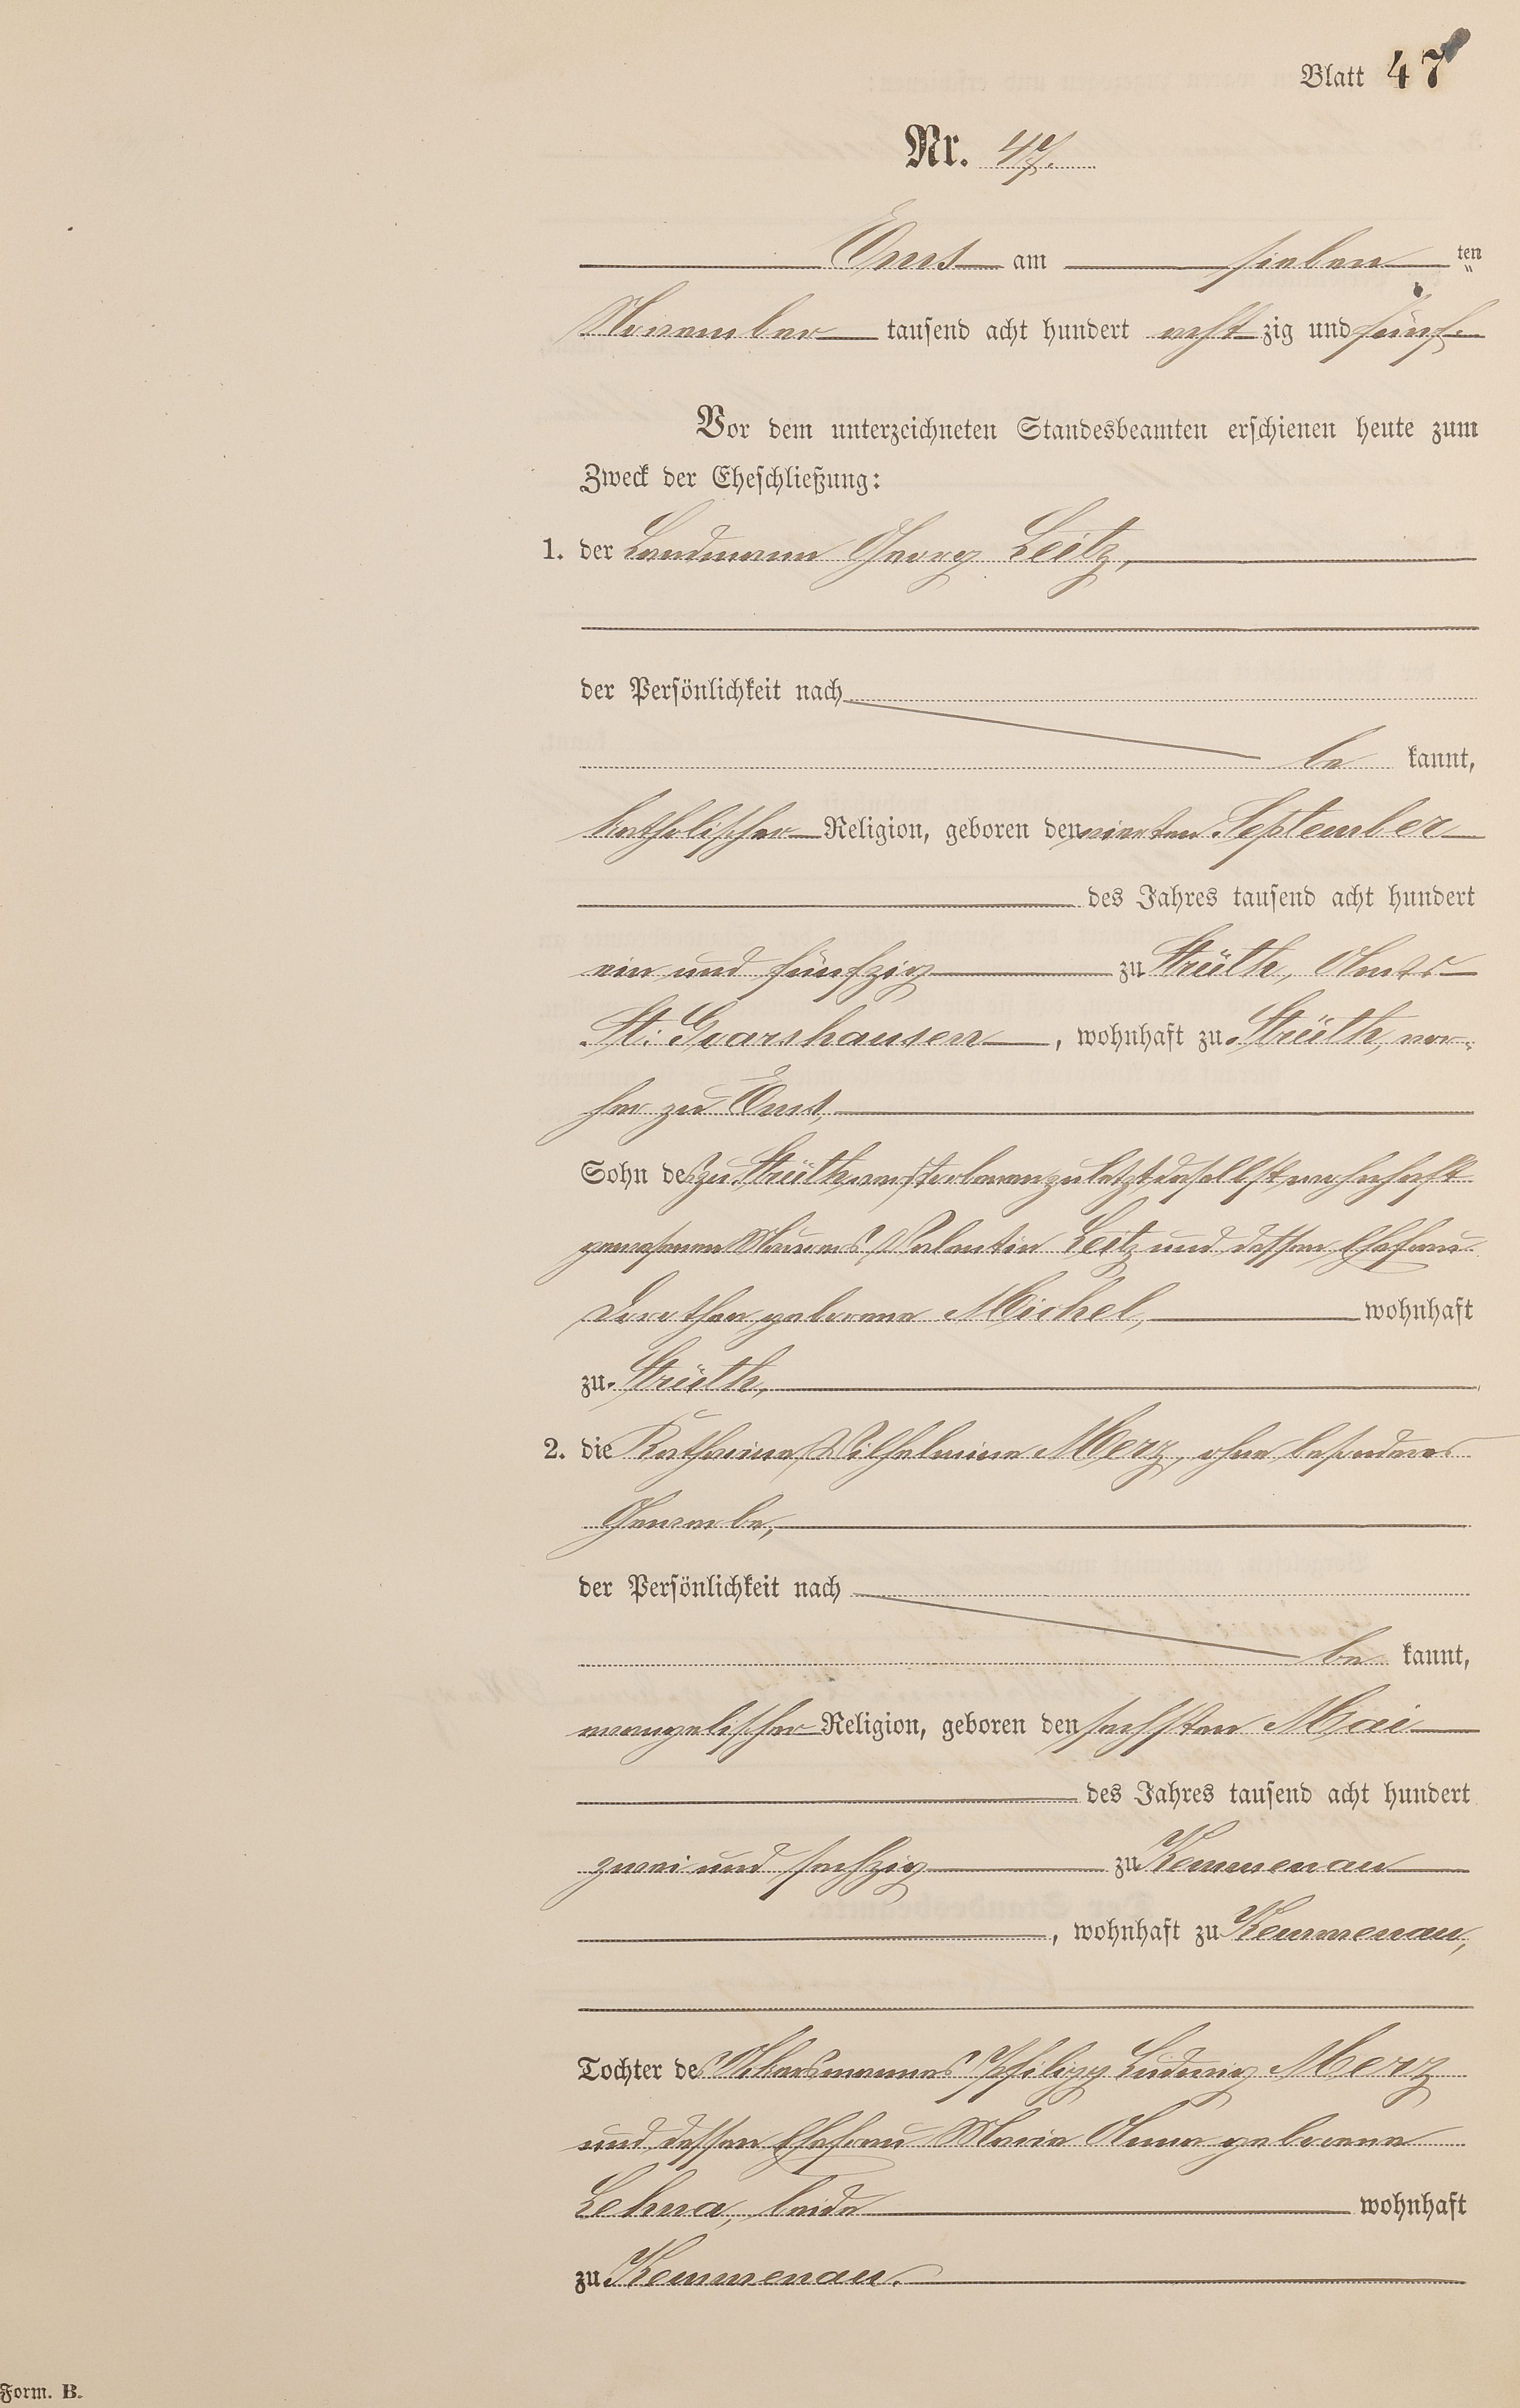 Blatt 47
Nr. 47.
Ems am sieben ten
November tausend acht hundert acht zig und fünf.
Vor dem unterzeichneten Standesbeamten erschienen heute zum
Zweck der Eheschließung:
1. der Landmann Georg Leitz,
der Persönlichkeit nach
be kannt,
katholischer Religion, geboren den vierten September
des Jahres tausend acht hundert
ein und fünfzig zu Strüth, Amts
St. Goarshausen, wohnhaft zu Strüth, vor-
her zu Ems,
Sohn des zu Strüth verstorbenen zuletzt daselbst wohnhaft
gewesenen Maurers Valentin Leitz und dessen Ehefrau
Dorothea geborene Michel, wohnhaft
zu Strüth,
2. die Katharine Wilhelmine Merz, ohne besonderes
Gewerbe,
der Persönlichkeit nach
be kannt,
evangelischer Religion, geboren den sechsten Mai
des Jahres tausend acht hundert
zwei und sechzig zu Kemmenau
, wohnhaft zu Kemmenau,
Tochter des Ackersmannes Philipp Ludwig Merz
und dessen Ehefrau Marie Anna geborene
Lehna, beide wohnhaft
zu Kemmenau.
Form. B.